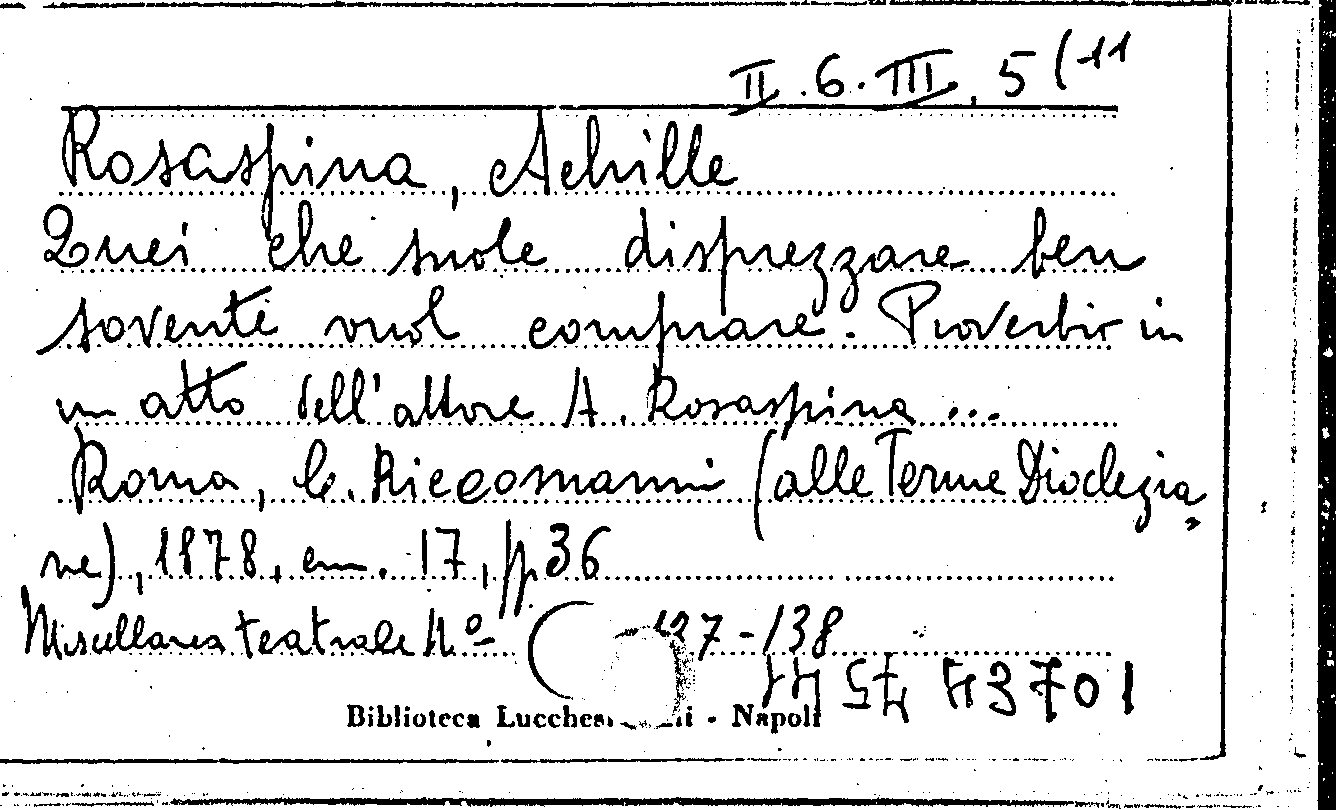 II.6.III.5(11
Rosaspina, Achille
Quei che suole disprezzare ben
sovente vuol comprare. Proverbio in
un atto dell'attore A. Rosaspina ...
Roma, C. Riccomanni (alle Terme Dioclezia
ne), 1878, cm. 17, pp. 36
Miscellanea teatrale N.º 137-138
43701
Biblioteca Lucchesi - Napoli